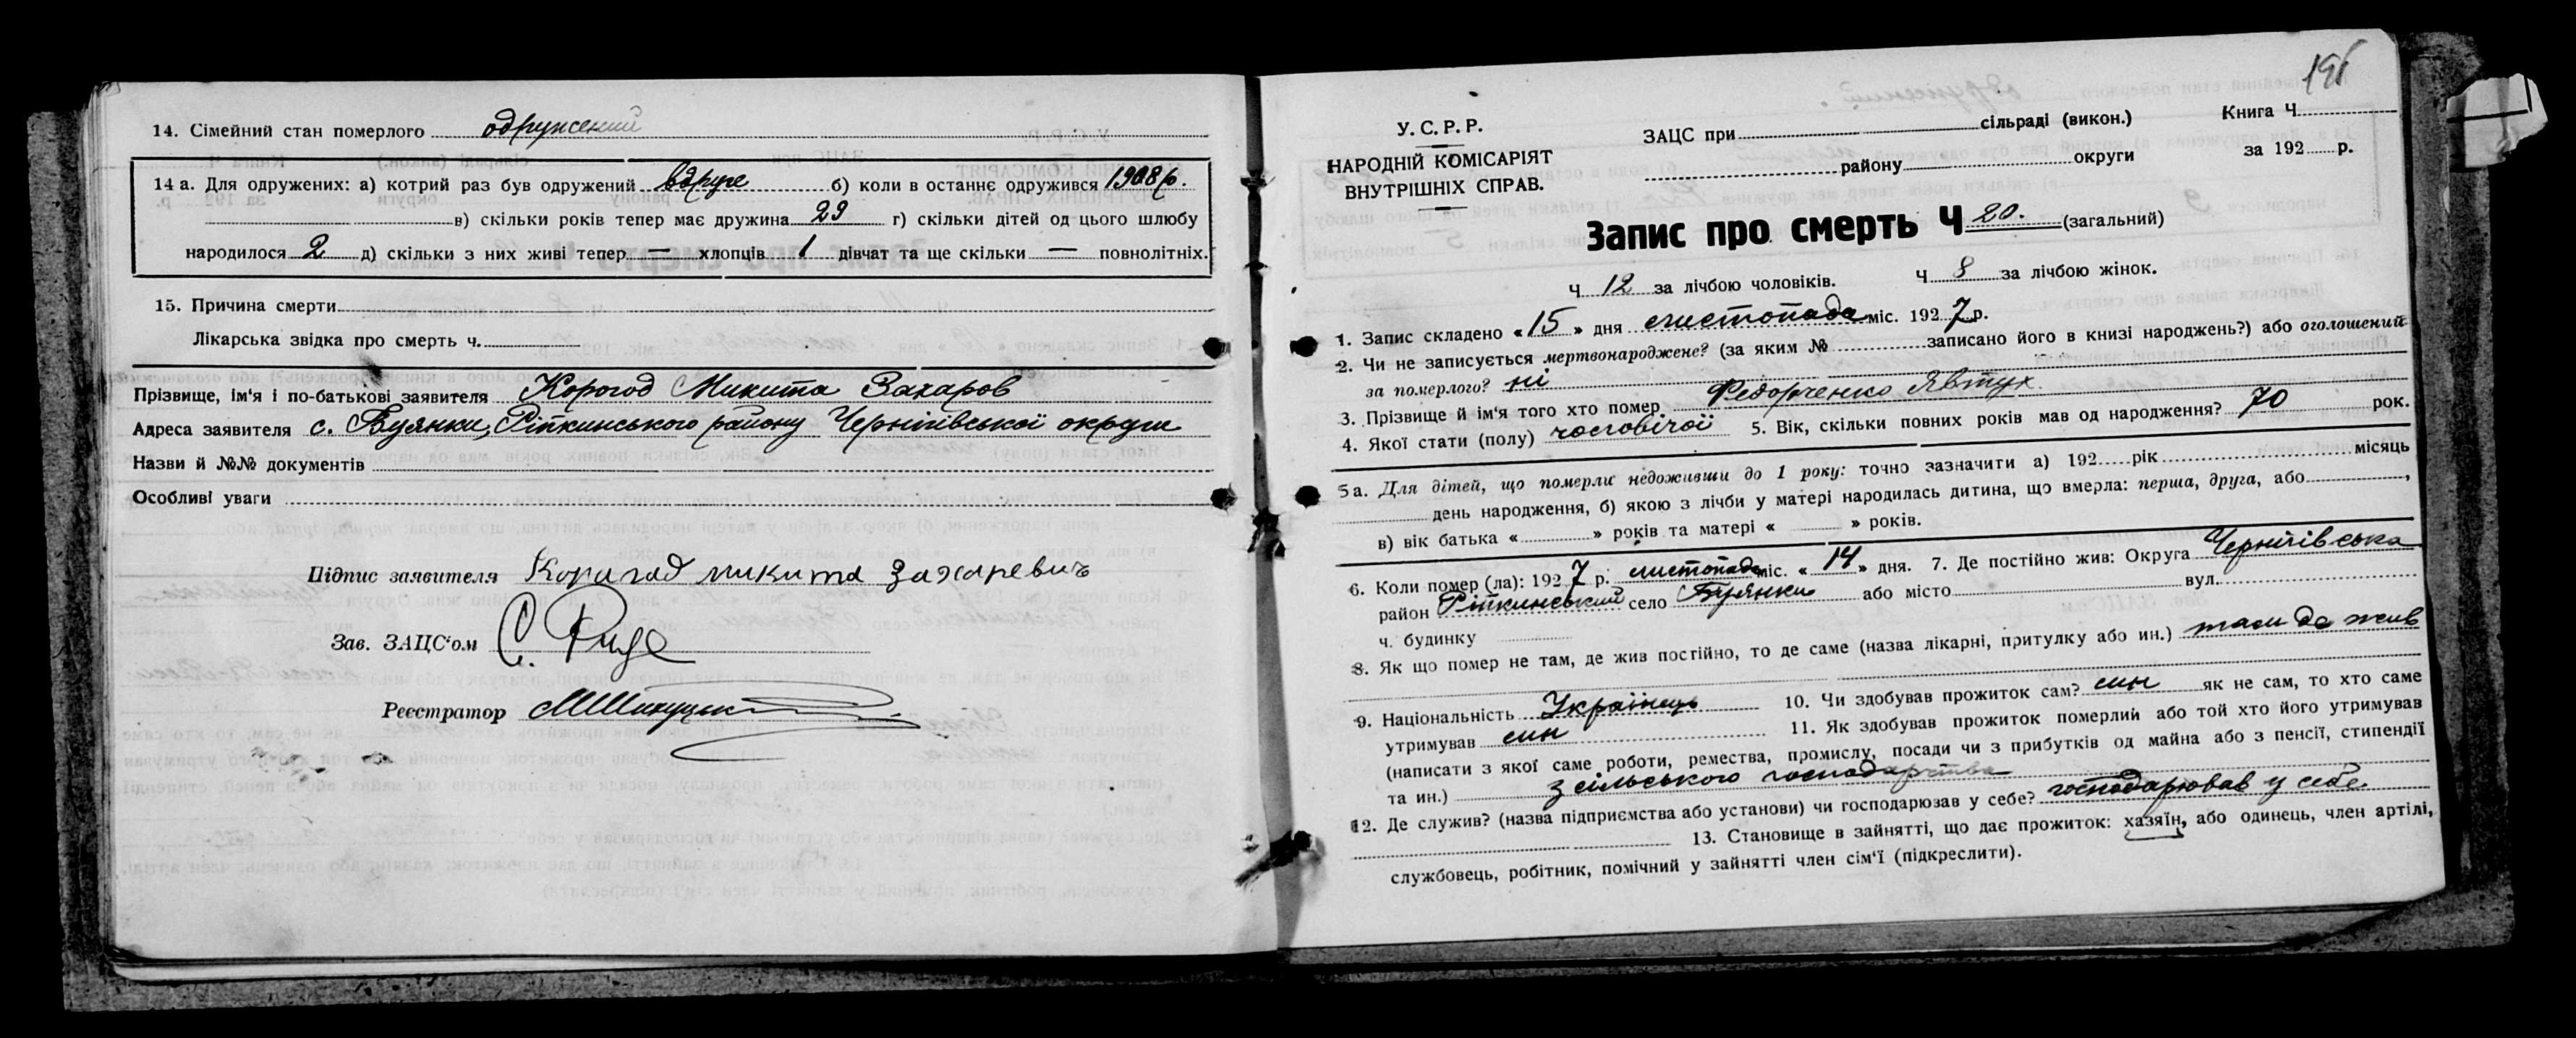 14. Сімейний стан померлого одружений
14 а. Для одружених: а) котрий раз був одружений вдруге б) коли в останнє одружився 1908 р.
в) скільки років тепер має дружина 29 г) скільки дітей од цього шлюбу
народилося 2 д) скільки з них живі тепер — хлопців 1 дівчат та ще скільки — повнолітніх.
15. Причина смерти
Лікарська звідка про смерть ч.
Прізвище, ім'я і по-батькові заявителя Корогод Микита Захаров
Адреса заявителя с. Буянки, Ріпкинського району Чернігівської округи
Назви й №№ документів
Особливі уваги
Підпис заявителя Корагад микита Захаревич
Зав. ЗАЦС'ом С.
Реєстратор
195
У. С. Р. Р.
НАРОДНІЙ КОМІСАРІЯТ
ВНУТРІШНІХ СПРАВ.
ЗАЦС при сільраді (викон.) Книга Ч
району округи за 192 р.
Запис про смерть Ч 20. (загальний)
Ч 12 за лічбою чоловіків. Ч 8 за лічбою жінок.
1. Запис складено « 15 » дня листопада міс. 192 7 р.
2. Чи не записується мертвонароджене? (за яким № записано його в книзі народжень?) або оголошений
за померлого? ні
3. Прізвище й ім'я того хто помер Федорченко Явтух
4. Якої стати (полу) чоловічої 5. Вік, скільки повних років мав од народження? 70 рок.
5а. Для дітей, що померли недоживши до 1 року: точно зазначити а) 192 рік місяць
день народження, б) якою з лічби у матері народилась дитина, що вмерла: перша, друга, або ,
в) вік батька « » років та матері « » років.
6. Коли помер (ла): 192 7 р. листопада міс. « 14 » дня. 7. Де постійно жив: Округа Чернігівська
район Ріпкинський село Буянки або місто вул.
ч. будинку
8. Як що помер не там, де жив постійно, то де саме (назва лікарні, притулку або ин.) там де жив
9. Національність Українець 10. Чи здобував прожиток сам? син як не сам, то хто саме
утримував син 11. Як здобував прожиток померлий або той хто його утримував
(написати з якої саме роботи, ремества, промислу, посади чи з прибутків од майна або з пенсії, стипендії
та ин.) з сільського господарства
12. Де служив? (назва підприємства або установи) чи господарював у себе? господарював у себе
13. Становище в зайнятті, що дає прожиток: хазяїн, або одинець, член артілі,
службовець, робітник, помічний у зайнятті член сім'ї (підкреслити).